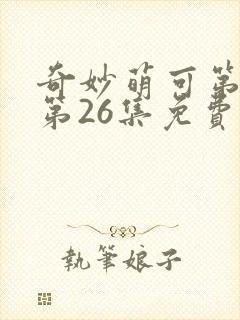 奇妙萌可第
第26集免費
執筆娘子